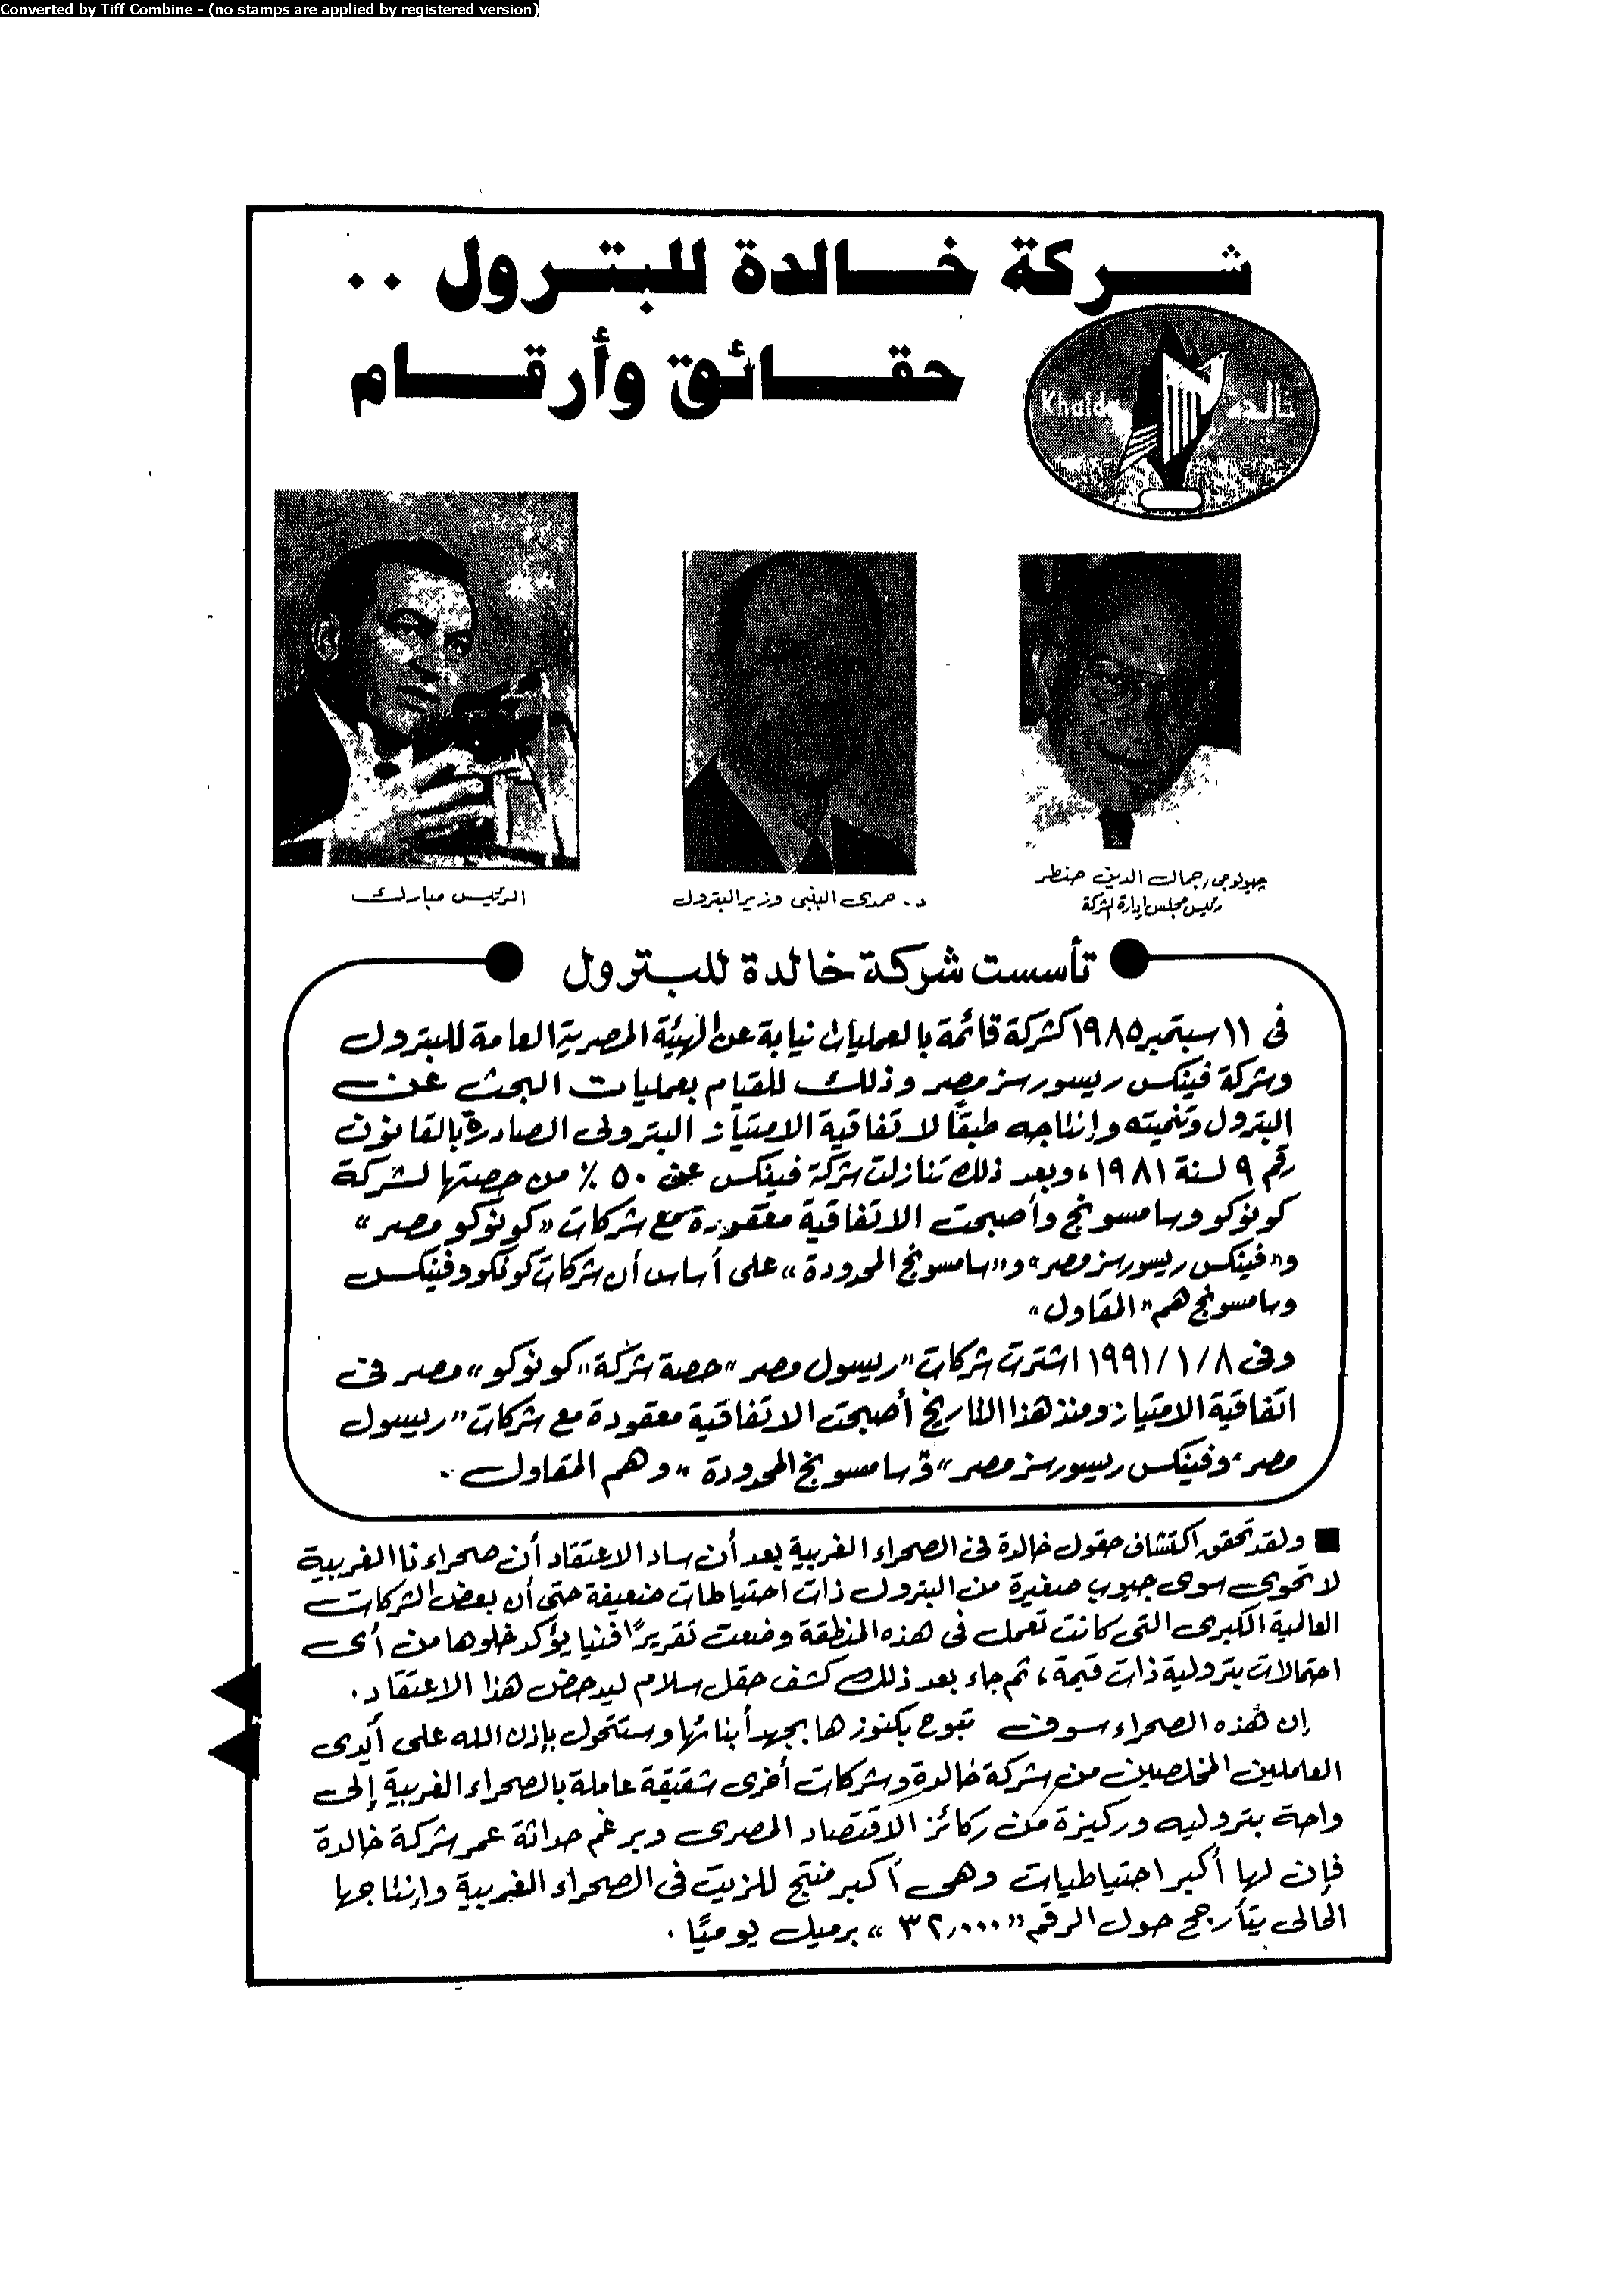 Converted by Tiff Combine - (no stamps are applied by registered version)
شركة خالدة للبترول ..
حقائق وأرقام
Khalda خالده
جيولوجى/جمال الدين حنطر
رئيس مجلس إدارة الشركة
د. حمدى البنبى وزير البترول
الرئيس مبارك
تأسست شركة خالدة للبترول
فى ١١ سبتمبر ١٩٨٥ كشركة قائمة بالعمليات نيابة عن الهيئة المصرية العامة للبترول
وشركة فينكس ريسورسز مصر وذلك للقيام بعمليات البحث عن
البترول وتنميته وإنتاجه طبقًا لاتفاقية الامتياز البترولى الصادرة بالقانون
رقم ٩ لسنة ١٩٨١، وبعد ذلك تنازلت شركة فينكس عن ٥٠٪ من حصتها لشركة
كونوكو وسامسونج وأصبحت الاتفاقية معقودة مع شركات «كونوكو مصر»
و«فينكس ريسورسز مصر» و«سامسونج المحدودة» على أساس أن شركات كونكو وفينكس
وسامسونج هم «المقاول»
وفى ١٩٩١/١/٨ اشترت شركات «ريبسول مصر» حصة شركة «كونوكو» مصر فى
اتفاقية الامتياز ومنذ هذا التاريخ أصبحت الاتفاقية معقودة مع شركات «ريبسول
مصر، وفينكس ريسورسز مصر» و«سامسونج المحدودة» وهم المقاول ..
■ ولقد تحقق اكتشاف حقول خالدة فى الصحراء الغربية بعد أن ساد الاعتقاد أن صحراءنا الغربية
لا تحوى سوى جيوب صغيرة من البترول ذات احتياطات ضعيفة حتى أن بعض الشركات
العالمية الكبرى التى كانت تعمل فى هذه المنطقة وضعت تقريرًا فنيا يؤكد خلوها من أى
احتمالات بترولية ذات قيمة، ثم جاء بعد ذلك كشف حقل سلام ليدحض هذا الاعتقاد.
إن هذه الصحراء سوف تبوح بكنوزها بجهد أبنائها وستتحول بإذن الله على أيدى
العاملين المخلصين من شركة خالدة وشركات أخرى شقيقة عاملة بالصحراء الغربية إلى
واحة بتروليه وركيزة من ركائز الاقتصاد المصرى وبرغم حداثة عمر شركة خالدة
فإن لها أكبر احتياطيات وهى أكبر منتج للزيت فى الصحراء الغربية وإنتاجها
الحالى يتأرجح حول الرقم «٣٢,٠٠٠» برميل يوميًا.